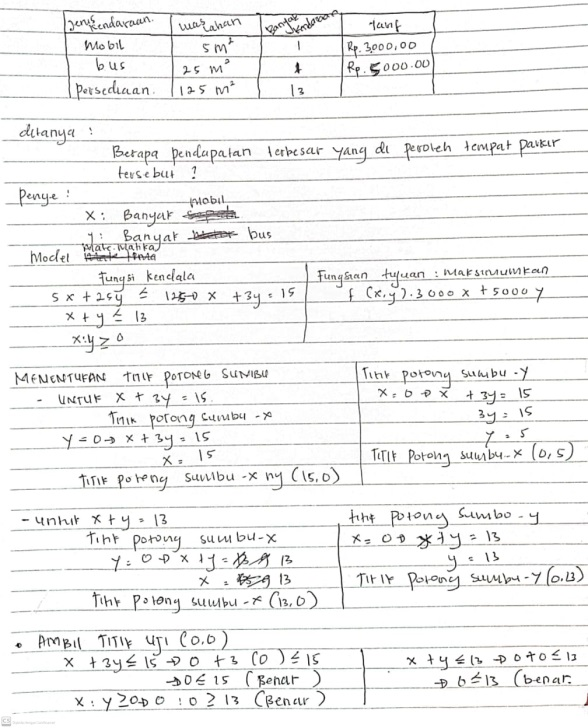 Jenis Kendaraan. Luas Lahan Banyak Kendaraan Tarif
Mobil 5 m² 1 Rp. 3000,00
bus 25 m² 1 Rp. 5000.00
Persediaan. 125 m² 13
ditanya :
Berapa pendapatan terbesar yang di peroleh tempat parkir
tersebut ?
Penye :
X : Banyak mobil
y : Banyak bus
Model Matematika
Fungsi kendala
5x + 25y ≤ 125 x + 3y = 15
x + y ≤ 13
x:y ≥ 0
Fungsian tujuan : Maksimumkan
f (x,y). 3000 x + 5000 y
MENENTUKAN TITIK POTONG SUMBU
- UNTUK x + 3y = 15.
Titik potong sumbu -x
y = 0 → x + 3y = 15
x = 15
Titik potong sumbu -x ny (15,0)
Titik potong sumbu -y
x = 0 → x + 3y = 15
3y = 15
y = 5
Titik potong sumbu-x (0,5)
- untuk x + y = 13
titik potong sumbu-x
y = 0 → x + y = 13
x = 13
titik potong sumbu -x (13,0)
titik potong sumbo -y
x = 0 → x + y = 13
y = 13
Titik potong sumbu-y (0.13)
• AMBIL TITIK UJI (0.0)
x + 3y ≤ 15 → 0 + 3 (0) ≤ 15
→ 0 ≤ 15 (Benar)
x : y ≥ 0 → 0 : 0 ≥ 13 (Benar)
x + y ≤ 13 → 0 + 0 ≤ 13
→ 0 ≤ 13 (benar.
CS